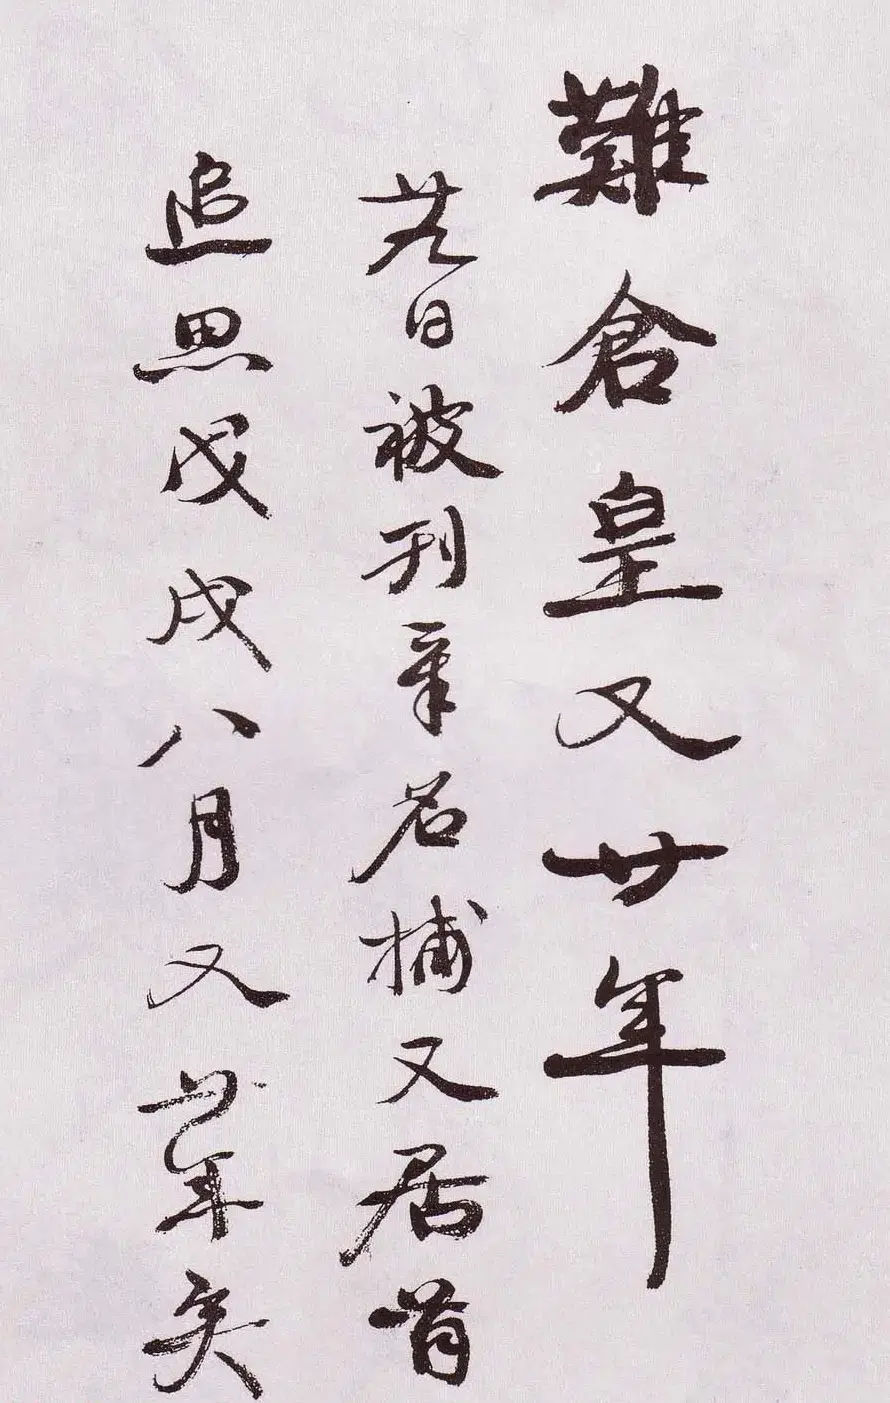 難倉皇又廿年
廿九日被刊章名捕又居首
追思戊戌八月又廿年矣